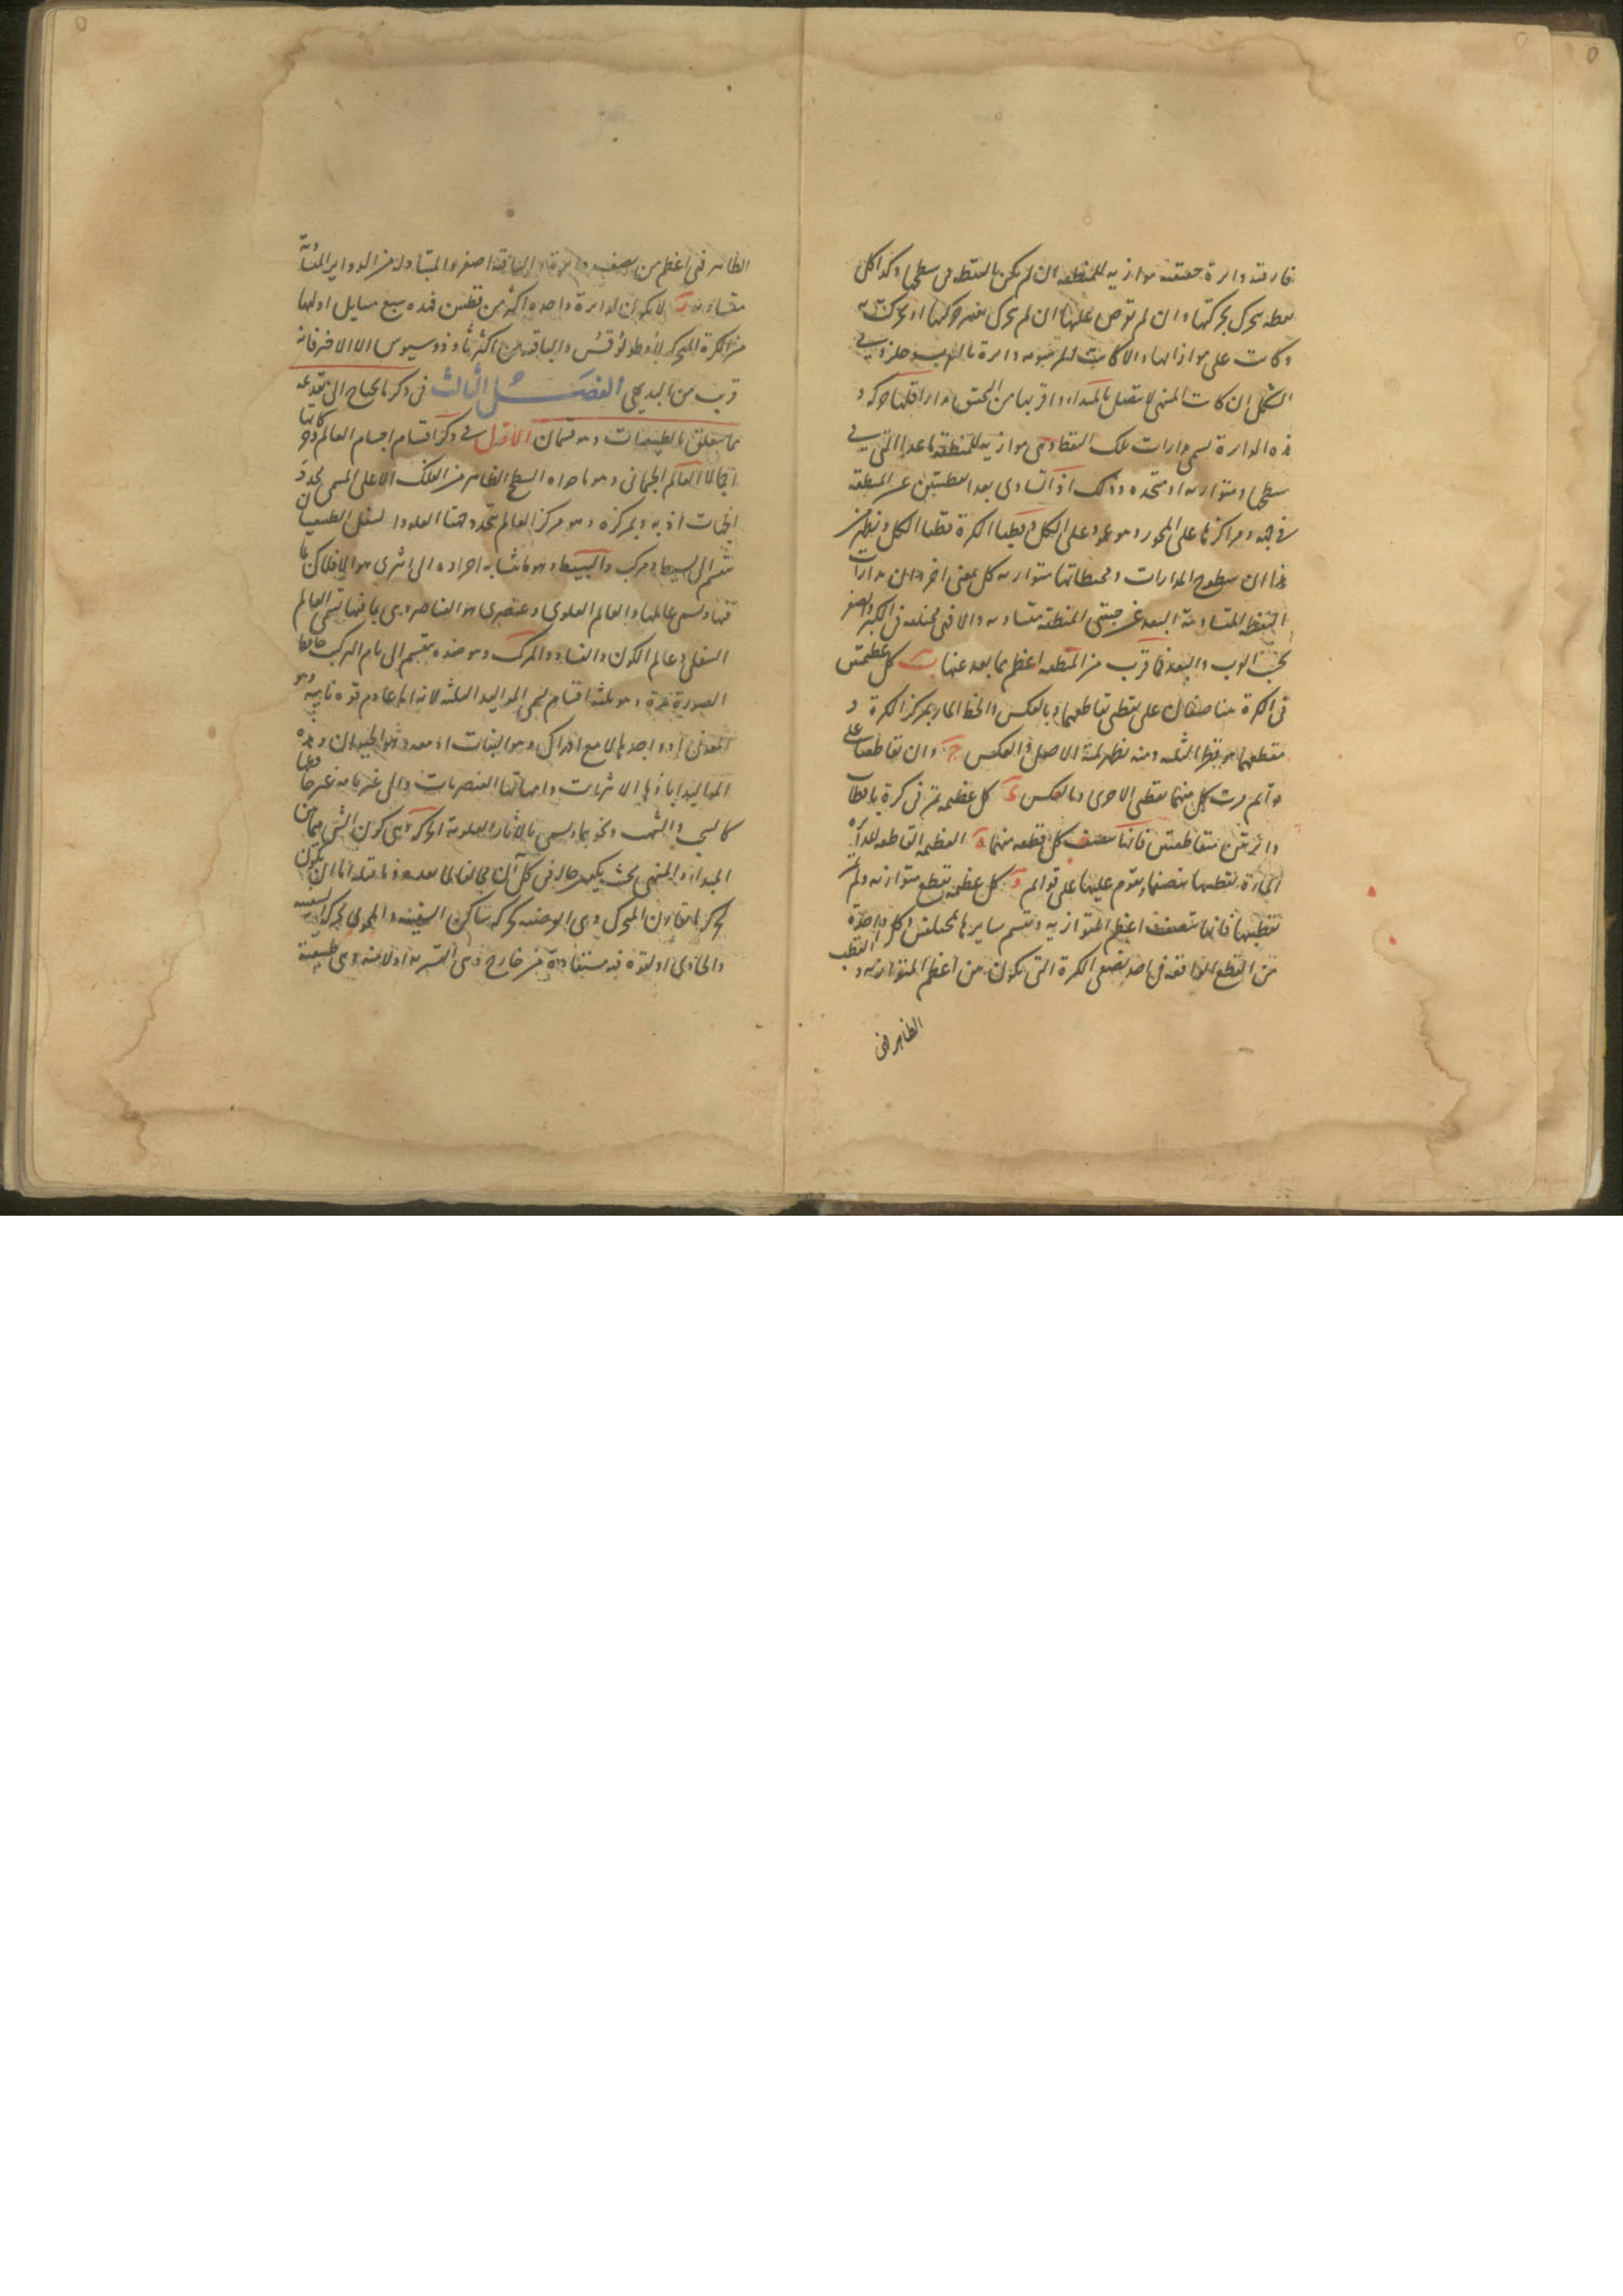 فارقته دائرة حقيقية موازية للمنطقة ان لم يكن بالنقطة في سطحها وكذا كل
نقطة يتحرك بحركتها وان لم تفرض عليها ان لم يتحرك بغير حركتها او تحركت
وكانت على موازاتها والا كانت دائرة
الشكل ان كانت المنتهى لا يتصل بالمبداء واقربها من
هذه الدائرة تسمى مدارات تلك النقط وهي موازية للمنطقة ما عدا التي في
سطحها ومتوازية او متحدة وذلك اذا تساوى بعد النقطتين عن المنطقة
في جهة ومراكزها على المحور وهو عمود على الكل وقطبا الكرة قطبا الكل ونظهر من
هذا ان سطوح المدارات ومحيطاتها متوازية كل بمعنى اخر وان مدارات
النقط المتساوية البعد عن جنبتي المنطقة متساوية والا فهي مختلفة في الكبر والصغر
بحسب القرب والبعد فما قرب من المنطقة اعظم مما بعد عنها ب كل عظيمتين
في الكرة يتناصفان على نقطتي تقاطعهما وبالعكس والخط المار بمركز الكرة و
مقطعهما هو قطر الثلثة ومنه يظهر لمية الاصل والعكس ج وان تقاطعتا على
قوائم مرت كل منهما بقطبي الاخرى وبالعكس د كل عظيمة تمر في كرة باقطاب
دائرتين متقاطعتين فانها تنصف كل قطعة منهما ه العظيمة القاطعة لدائرة
المارة بقطبيها تنصفها وتقوم عليها على قوائم و كل عظيمة تقطع متوازية ولم تمر
بقطبيها فانها تنصف اعظم المتوازية وتقسم سايرها بمختلفين وكل واحدة
من القطع الواقعة في احد نصفي الكرة التي تكون من اعظم المتوازية والقطب
الظاهر فهي
الظاهر فهي اعظم من نصف دائرة والباقية اصغر والمتبادلة من الدواير المتساوية
متساوية ز لا يكون لدائرة واحدة اكثر من قطبين فهذه سبع مسايل اولها
من الكرة المتحركة لأوطولوقس والباقية من اكر ثاوذوسيوس الا الاخر فانه
قريب من البديهي الفصل الثالث في ذكر ما يحتاج الى تقديمه
مما يتعلق بالطبيعيات وهو قسمان الاول في ذكر اقسام اجسام العالم وحركاتها
اجمالا العالم الجسماني وهو ما حواه السطح الظاهر من الفلك الاعلى المسمى بمحدد
الجهات اذ به وبمركزه وهو مركز العالم يتحدد جهتا العلو والسفل الطبيعيتان
ينقسم الى بسيط ومركب والبسيط وهو ما تشابه اجزاؤه الى اثيري هو الافلاك بما
فيها ويسمى عالمها والعالم العلوي وعنصري هو العناصر وهي بما فيها تسمى العالم
السفلي وعالم الكون والفساد والمركب وهو ضده ينقسم الى تام التركيب حافظ
الصورة مدة وهو ثلثة اقسام تسمى المواليد الثلثة لانه اما عادم قوة نامية وهو
المعدني او واجدها لا مع ادراك وهو النبات او معه وهو الحيوان وهذه
المواليد اباؤها الاثيريات وامهاتها العنصريات والى غير تامه غير حافظها
كالسحب والشهب ونحوهما ويسمى بالآثار العلوية الحركة وهي كون الشيء فيما بين
المبداء والمنتهى بحيث يكون حاله في كل آن مخالفا لما بعده وما قبله اما ان يكون
تحركه بما يقارن المتحرك وهي العرضية كحركة ساكن السفينة والمحوي بحركة السفينة
والحاوي او بقوة فيه مستفادة من خارج وهي القسرية او لا منه وهي طبيعية